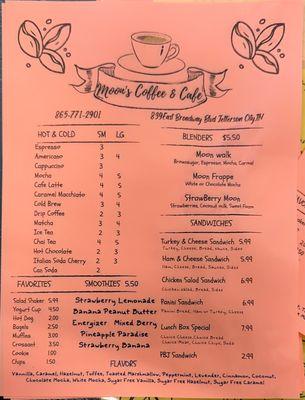 Moon's Coffee & Cafe
865-771-2901
899 East Broadway Blvd Jefferson City, TN
HOT & COLD SM LG
Espresso 3
Americano 3 4
Cappuccino 3
Mocha 4 5
Cafe Latte 4 5
Caramel Macchiato 4 5
Cold Brew 3 4
Drip Coffee 2 3
Matcha 3 4
Ice Tea 2 3
Chai Tea 4 5
Hot Chocolate 2 3
Italian Soda Cherry 2 3
Can Soda 2
BLENDERS $5.50
Moon walk
Brownsugar, Espresso, Mocha, Carmel
Moon Frappe
White or Chocolate Mocha
StrawBerry Moon
Strawberries, Coconut milk, Sweet Foam
SANDWICHES
Turkey & Cheese Sandwich 5.99
Turkey, Cheese, Bread, Sauce, Sides
Ham & Cheese Sandwich 5.99
Ham, Cheese, Bread, Sauces, Sides
Chicken Salad Sandwich 6.99
Chicken salad, Bread, Sides
Panini Sandwich 6.99
Panini Bread, Ham or Turkey, Cheese
Lunch Box Special 7.99
Choice Cheese, Choice Bread
Choice Meat, Choice Chips, Soda
PBJ Sandwich 2.99
FAVORITES
Salad Shaker 5.99
Yogurt Cup 4.50
Hot Dog 2.00
Bagels 2.50
Muffins 3.00
Croissant 3.50
Cookie 1.00
Chips 1.50
SMOOTHIES 5.50
Strawberry Lemonade
Banana Peanut Butter
Energizer Mixed Berry
Pineapple Paradise
Strawberry Banana
FLAVORS
Vannilla, Caramel, Hazelnut, Toffee, Toasted Marshmallow, Peppermint, Lavender, Cinnamon, Coconut,
Chocolate Mocha, White Mocha, Sugar Free Vanilla, Sugar Free Hazelnut, Sugar Free Caramel